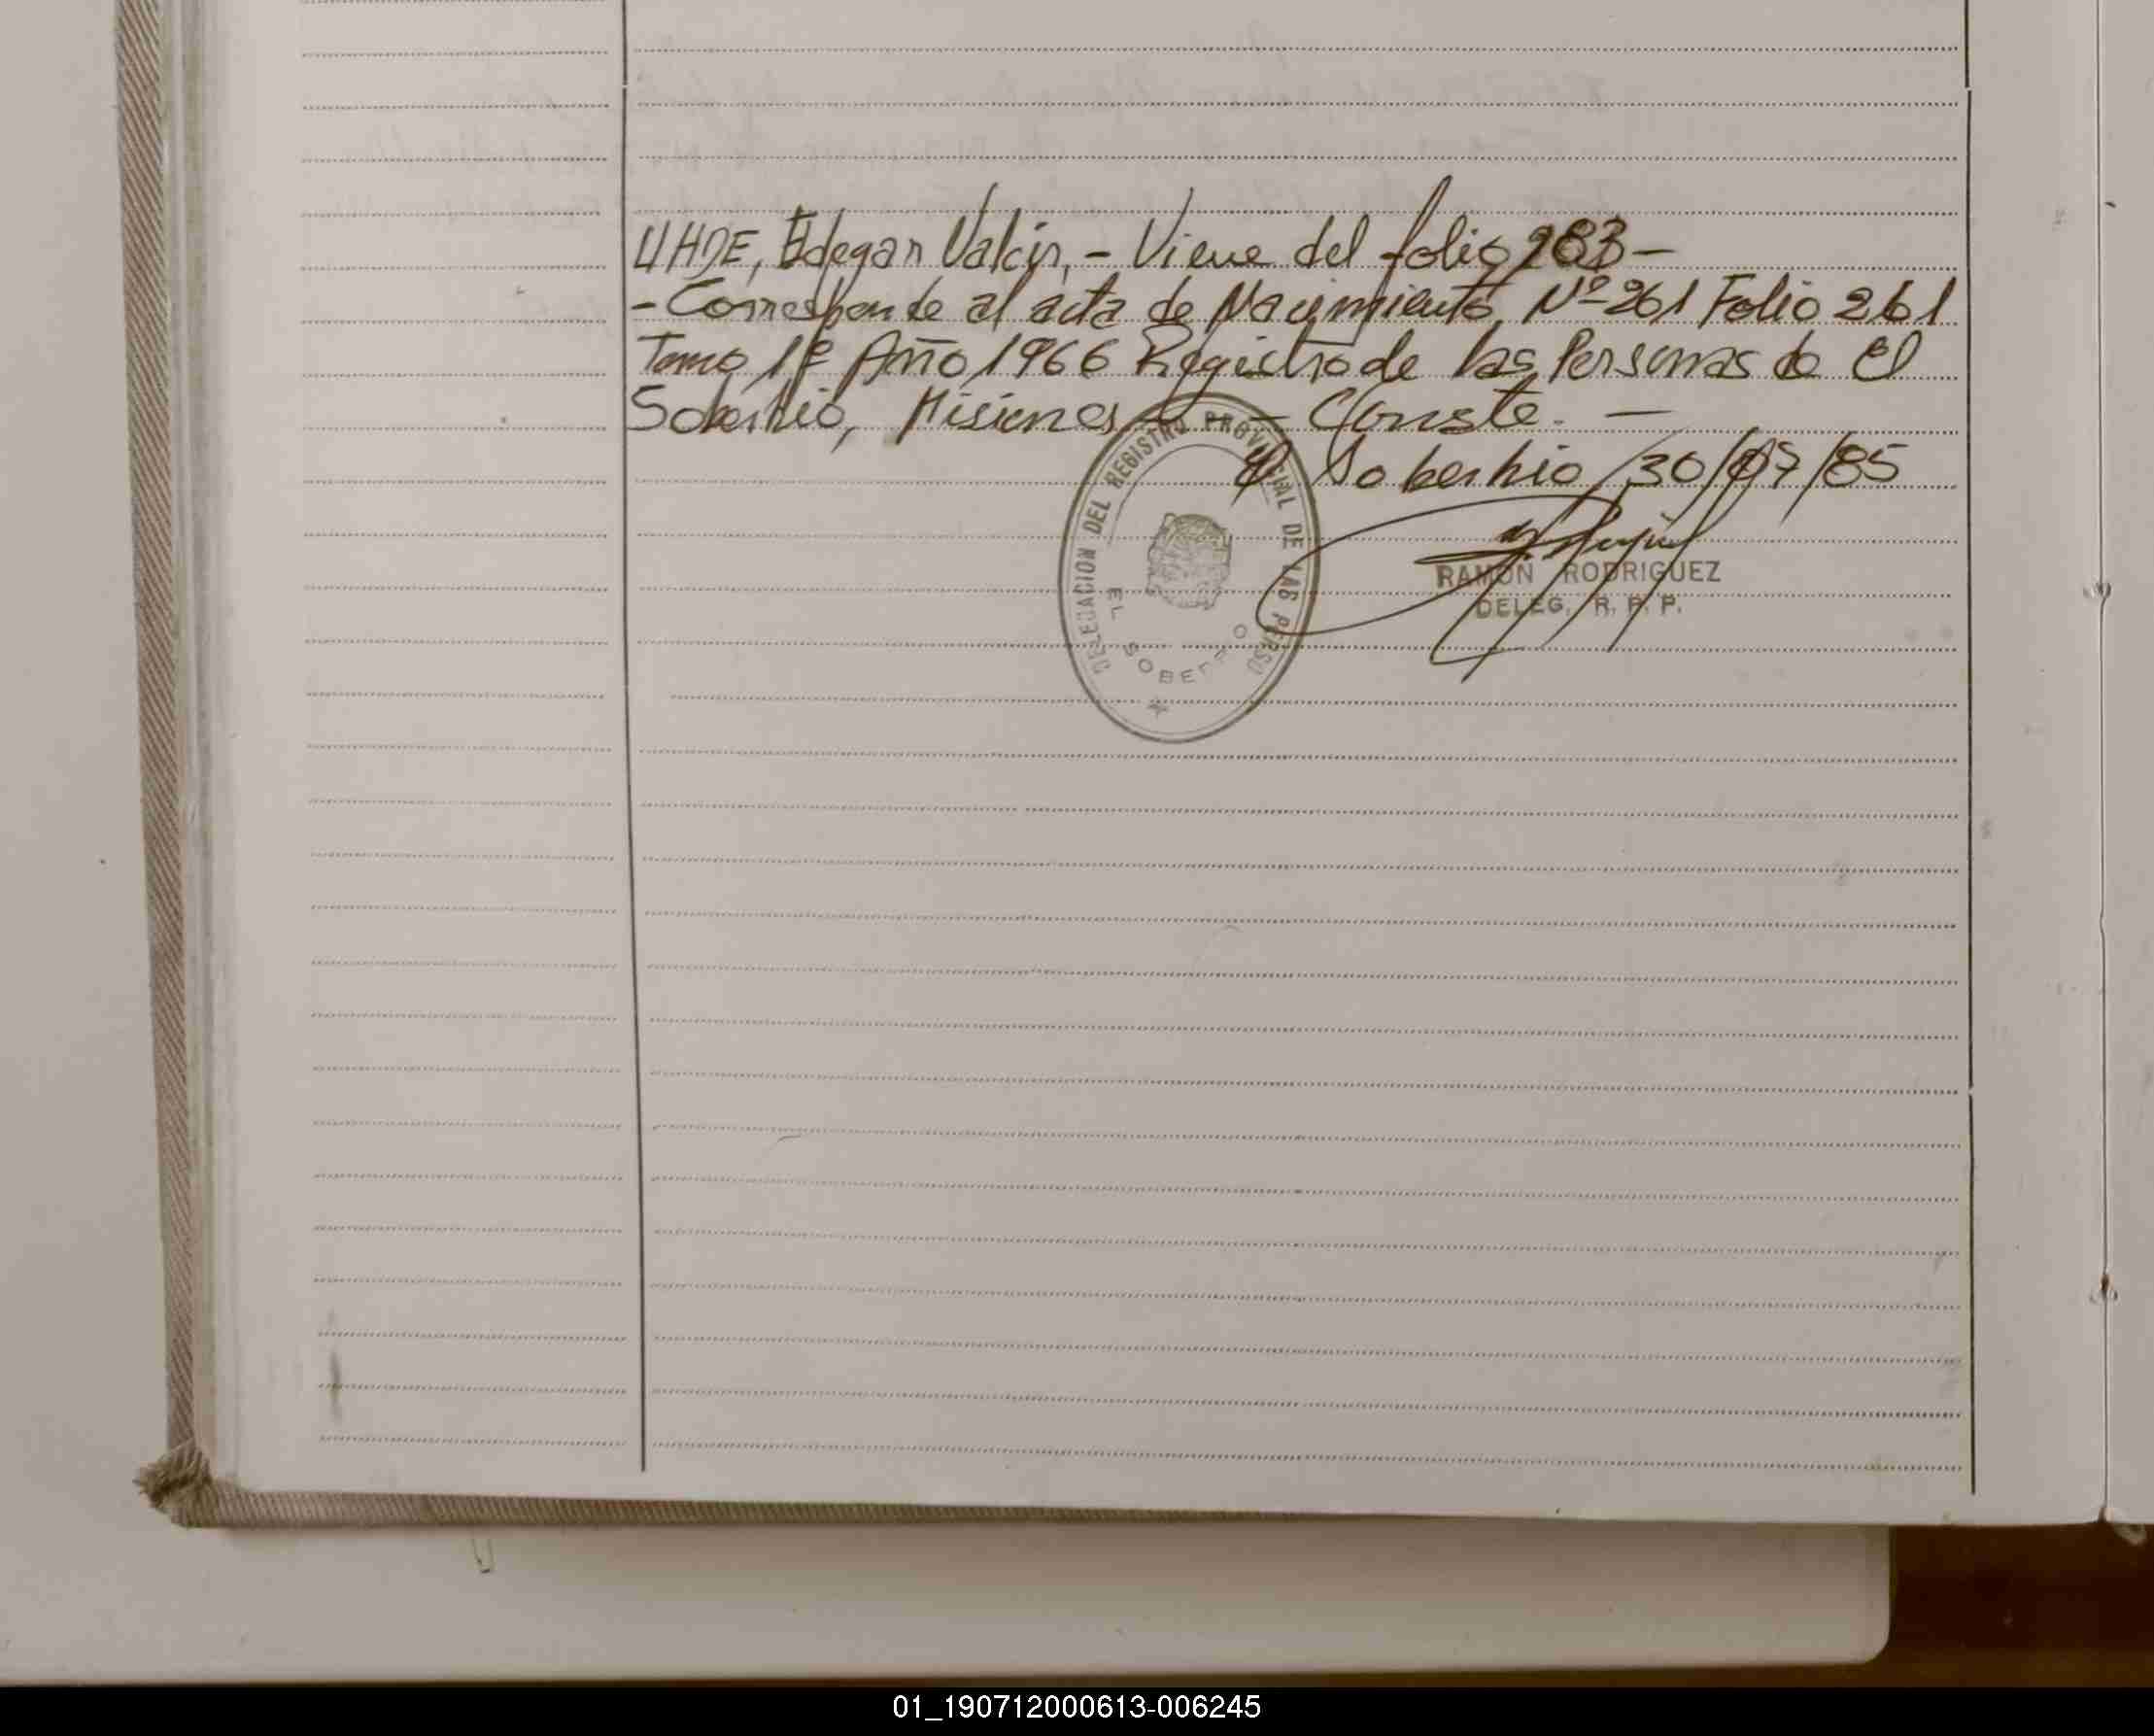 UHDE, Edegar Valcir, - Viene del folio 283 -
- Corresponde al acta de Nacimiento, Nº 261 Folio 261
Tomo 1º Año 1966 Registro de las Personas de El
Soberbio, Misiones - - Conste. -
El Soberbio, 30/07/85
DELEGACION DEL REGISTRO PROVINCIAL DE LAS PERSO
EL SOBERBIO
RAMON RODRIGUEZ
DELEG. R. P. P.
01_190712000613-006245